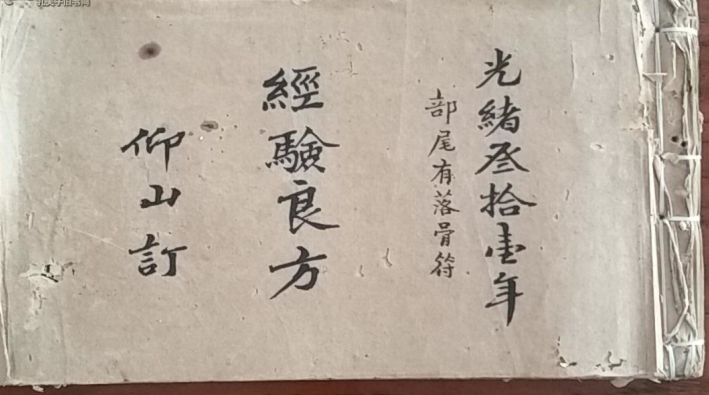 光緒叁拾壹年
部尾有落骨符
經驗良方
仰山訂